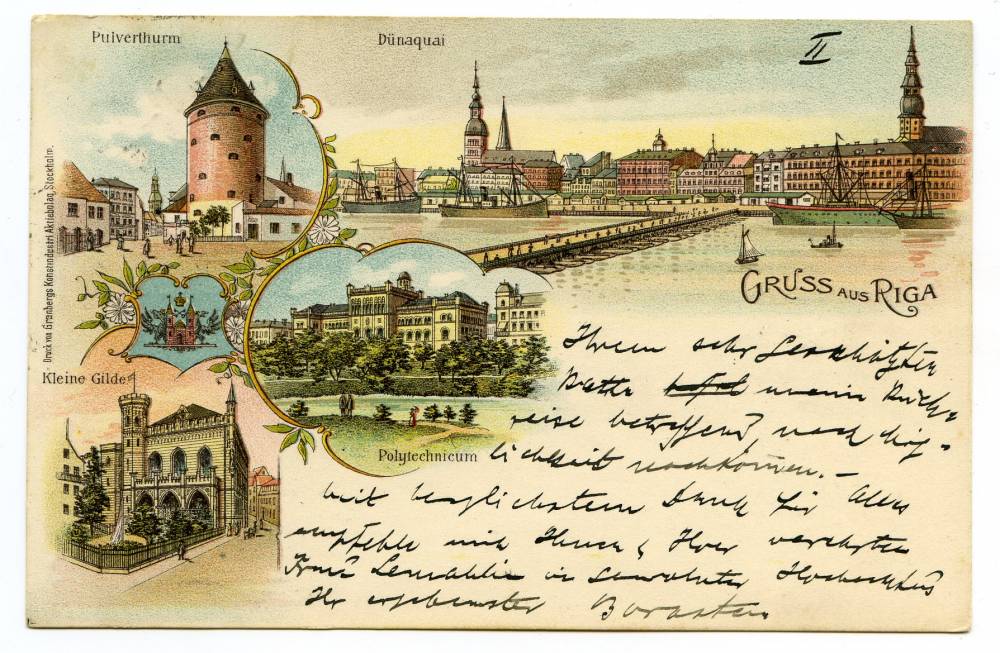 Pulverthurm
Dünaquai
II
Druck von Granbergs Konstindustri Aktiebolag, Stockholm.
GRUSS AUS RIGA
Kleine Gilde
Polytechnicum
Ihrem sehr geschätzten
Rathe meine Rück-
reise betreffend, nach Mög-
lichkeit nachkommen. –
Mit herzlichstem Dank für Alles
empfehle mich Ihnen & Ihrer verehrten
Frau Gemahlin in Hochachtung
Ihr ergebenster